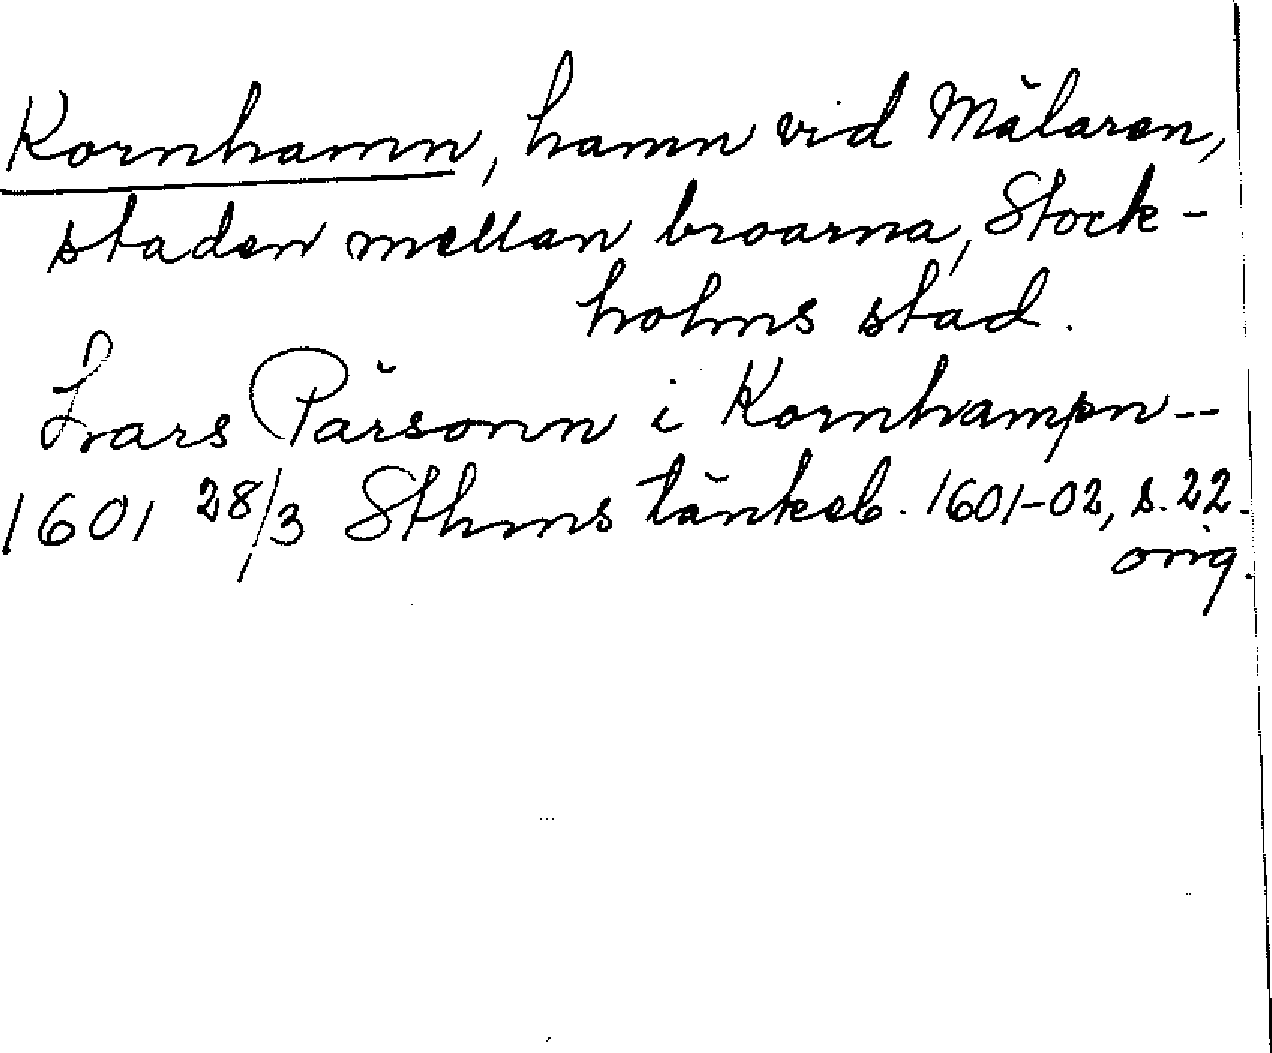 Kornhamn, hamn vid Mälaren,
staden mellan broarna, Stock-
holms stad.
Lars Pärsonn i Kornhampn --
1601 28/3 Sthms tänkeb. 1601-02, s. 22.
orig.